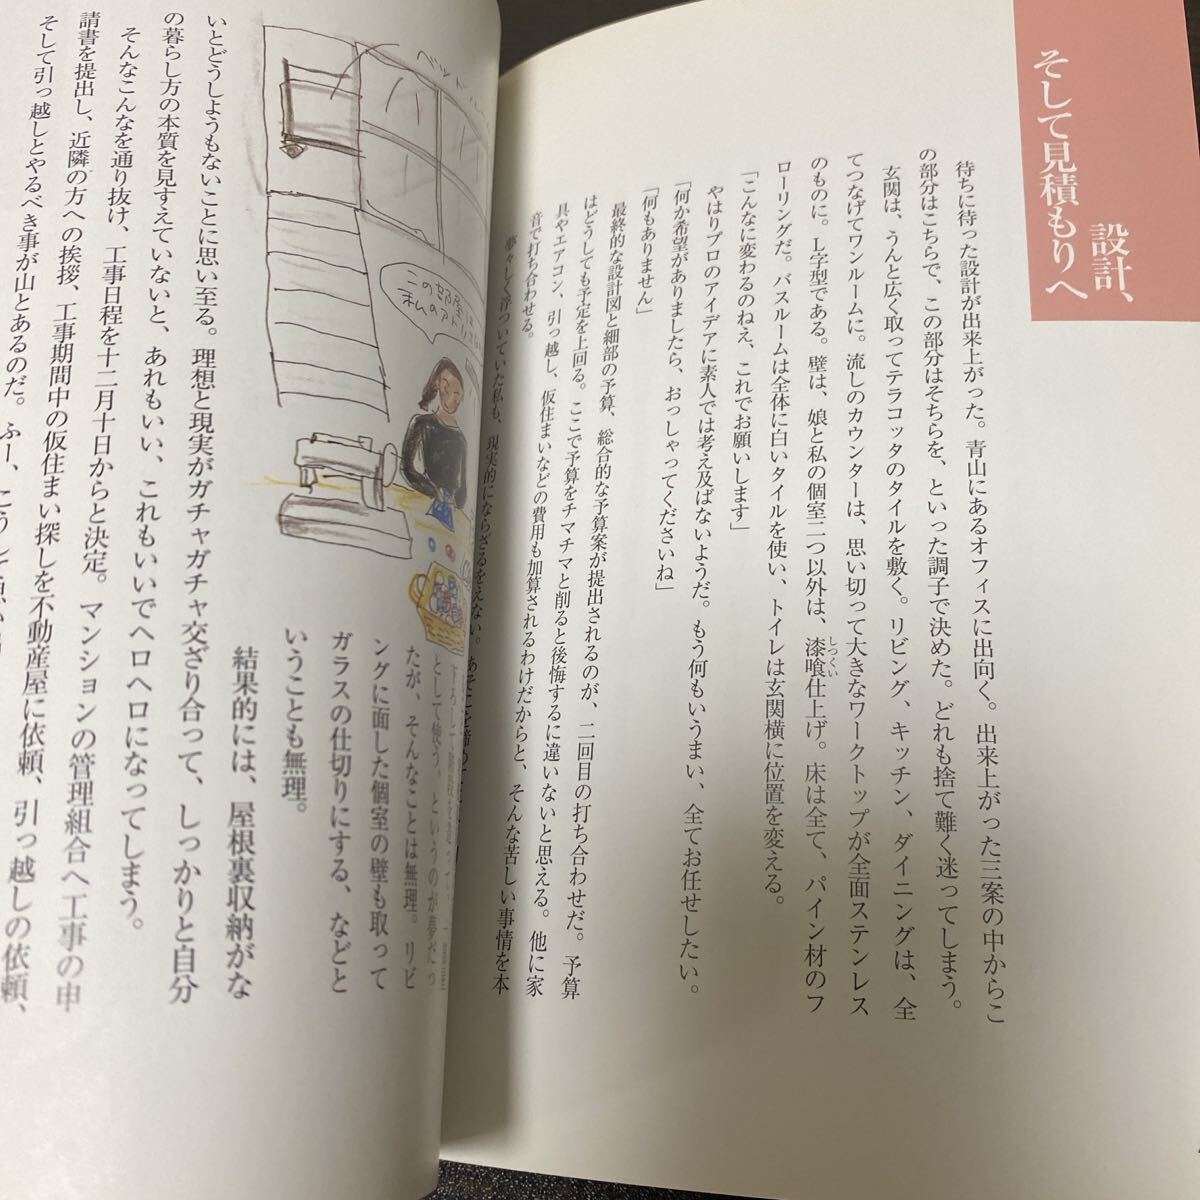 設計、
そして見積もりへ
待ちに待った設計が出来上がった。青山にあるオフィスに出向く。出来上がった三案の中からこ
の部分はこちらで、この部分はそちらを、といった調子で決めた。どれも捨て難く迷ってしまう。
玄関は、うんと広く取ってテラコッタのタイルを敷く。リビング、キッチン、ダイニングは、全
てつなげてワンルームに。流しのカウンターは、思い切って大きなワークトップが全面ステンレス
のものに。L字型である。壁は、娘と私の個室二つ以外は、漆喰仕上げ。床は全て、パイン材のフ
しっくい
ローリングだ。バスルームは全体に白いタイルを使い、トイレは玄関横に位置を変える。
「こんなに変わるのねえ、これでお願いします」
やはりプロのアイデアに素人では考え及ばないようだ。もう何もいうまい、全てお任せしたい。
「何か希望がありましたら、おっしゃってくださいね」
「何もありません」
最終的な設計図と細部の予算、総合的な予算案が提出されるのが、二回目の打ち合わせだ。予算
はどうしても予定を上回る。ここで予算をチマチマと削ると後悔するに違いないと思える。他に家
具やエアコン、引っ越し、仮住まいなどの費用も加算されるわけだからと、そんな苦しい事情を本
音で打ち合わせる。
夢々しく浮ついていた私も、現実的にならざるをえない。あそこを諦め
として使う、というのが夢だっ
たが、そんなことは無理。リビ
ングに面した個室の壁も取って
ガラスの仕切りにする、などと
いうことも無理。
結果的には、屋根裏収納がな
いとどうしようもないことに思い至る。理想と現実がガチャガチャ交ざり合って、しっかりと自分
の暮らし方の本質を見すえていないと、あれもいい、これもいいでヘロヘロになってしまう。
そんなこんなを通り抜け、工事日程を十二月十日からと決定。マンションの管理組合へ工事の申
請書を提出し、近隣の方への挨拶、工事期間中の仮住まい探しを不動産屋に依頼、引っ越しの依頼、
そして引っ越しとやるべき事が山とあるのだ。ふー、
この部屋は
私のアトリエ